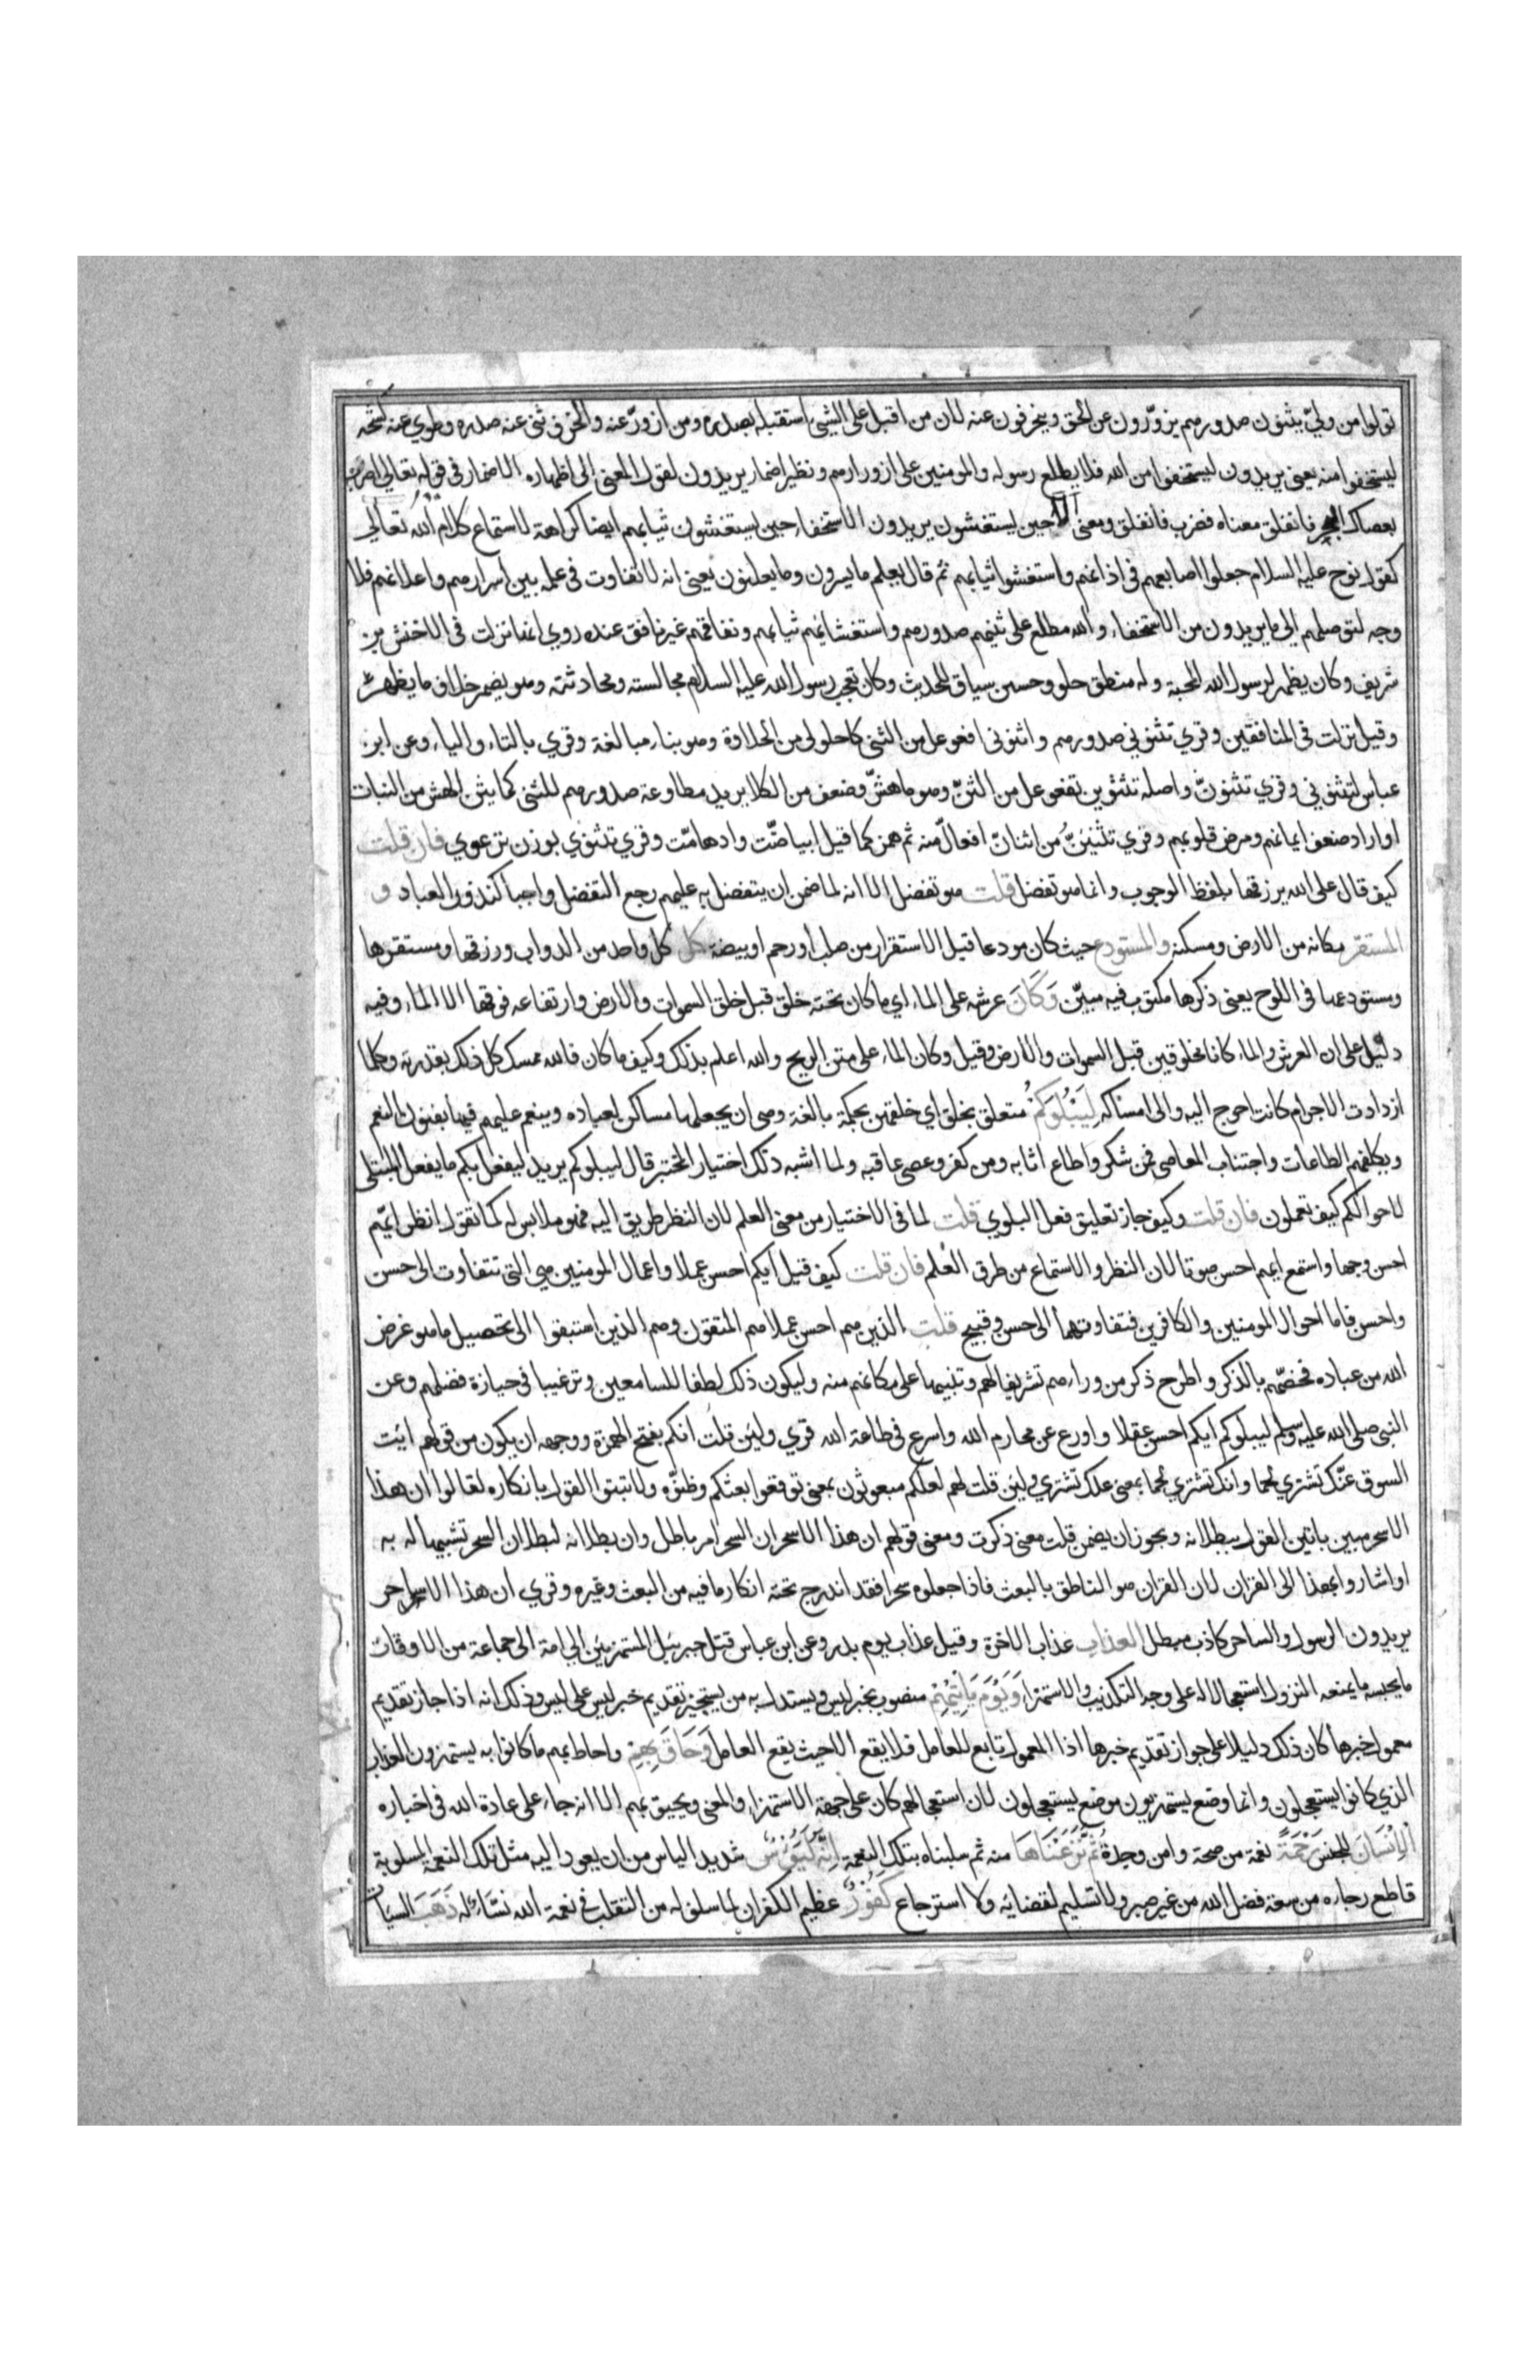 تولوا من ولي يثنون صدورهم يزورّون عن الحق وينحرفون عنه لان من اقبل على الشيئ استقبله بصدره ومن ازورّ عنه وانحرف ثنى عنه صدره وطوي عنه كشحه
ليستخفوا منه يعنى يريدون ليستخفوا من الله فلا يطلع رسوله والمومنين على ازورارهم ونظير اضمار يريدون لقود المعنى الى اظهاره الاضمار فى قوله تعالى اضرب
بعصاك البحر فانفلق معناه فضرب فانفلق ومعنى الا حين يستغشون يريدون الاستخفاء حين يستغشون ثيابهم ايضا كراهة لاستماع كلام الله تعالى
كقول نوح عليه السلام جعلوا اصابعهم فى اذانهم واستغشوا ثيابهم ثم قال يعلم ما يسرون وما يعلنون يعنى انه لا تفاوت فى علمه بين اسرارهم واعلانهم فلا
وجه لتوصلهم الى ما يريدون من الاستخفاء والله مطلع على ثنيهم صدورهم واستغشائهم ثيابهم ونفاقهم غير نافق عنده روي انها نزلت فى الاخنش بن
شريف وكان يظهر لرسول الله المحبة وله منطق حلو وحسن سياق للحديث وكان يعجب رسول الله عليه السلام مجالسته ومحادثته وهو يضمر خلاف ما يظهر
وقيل نزلت فى المنافقين وقري تثنوني صدورهم واثنونى افعوعل من الثنى كاحلولى من الحلاوة وهو بناء مبالغة وقري بالتاء والياء وعن ابن
عباس لتثنوني وقري تثنونّ واصله تثنونن تفعوعل من الثنّ وهو ما هشّ وضعف من الكلا يريد مطاوعة صدورهم للثنى كما ينثنى الهش من النبات
او اراد ضعف ايمانهم ومرض قلوبهم وقري تثنئنّ من اثنانّ افعالّ منه ثم همز كما قيل ابياضّت وادهامّت وقري تثنوي بوزن ترعوي فان قلت
كيف قال على الله يرزقها بلفظ الوجوب وانما هو تفضل قلت هو تفضل الا انه لما ضمن ان يتفضل به عليهم رجع التفضل واجبا كنذور العباد و
المستقر مكانه من الارض ومسكنه والمستودع حيث كان مودعا قبل الاستقرار من صلب او رحم او بيضة كل كل واحد من الدواب ورزقها ومستقرها
ومستودعها فى اللوح يعنى ذكرها مكتوب فيه مبيّن وَكَانَ عرشه على الماء اي ما كان تحته خلق قبل خلق السموات والارض وارتفاعه فوقها الا الماء وفيه
دليل على ان العرش والماء كانا مخلوقين قبل السموات والارض وقيل وكان الماء على متن الريح والله اعلم بذلك وكيف ما كان فالله ممسك كل ذلك بقدرته وكلما
ازدادت الاجرام كانت احوج اليه والى امساكه لِيَبْلُوَكُمْ متعلق بخلق اي خلقهن بحكمة بالغة وهى ان يجعلها مساكن لعباده وينعم عليهم فيها بفنون النعم
ويكلفهم الطاعات واجتناب المعاصى فمن شكر واطاع اثابه ومن كفر وعصى عاقبه ولما اشبه ذلك اختبار المختبر قال ليبلوكم يريد ليفعل بكم ما يفعل المبتلى
لاحوالكم كيف تعملون فان قلت وكيف جاز تعليق فعل البلوي قلت لما فى الاختيار من معنى العلم لان النظر طريق اليه فهو ملابس له كما تقول انظر ايّهم
احسن وجها واستمع ايهم احسن صوتا لان النظر والاستماع من طرق العلم فان قلت كيف قيل ايكم احسن عملا واعمال المومنين هى التى تتفاوت الى حسن
واحسن فاما احوال المومنين والكافرين فتفاوتهما الى حسن وقبيح قلت الذين هم احسن عملا هم المتقون وهم الذين استبقوا الى تحصيل ما هو غرض
الله من عباده فخصّهم بالذكر واطرح ذكر من وراءهم تشريفا لهم وتنبيها على مكانهم منه وليكون ذلك لطفا للسامعين وترغيبا فى حيازة فضلهم وعن
النبى صلى الله عليه وسلم ليبلوكم ايكم احسن عقلا واورع عن محارم الله واسرع فى طاعة الله قري ولئن قلت انكم بفتح الهمزة ووجهه ان يكون من قولهم ائت
السوق عنّك تشتري لحما وانك تشتري لحما بمعنى علك تشتري ولئن قلت لهم لعلكم مبعوثون بمعنى توقعوا بعثكم وظنوّه ولا تبتوا القول بانكاره لقالوا ان هذا
الا سحر مبين باتين القول ببطلانه ويجوز ان يضمن قلت معنى ذكرت ومعنى قولهم ان هذا الا سحر ان السحر امر باطل وان بطلانه لبطلان السحر تشبيها له به
او اشاروا بهذا الى القران لان القران هو الناطق بالبعث فاذا جعلوه سحرا فقد اندرج تحته انكار ما فيه من البعث وغيره وقري ان هذا الا ساحر
يريدون الرسول والساحر كاذب مبطل العذاب عذاب الاخرة وقيل عذاب يوم بدر وعن ابن عباس قتل جبرئيل المستهزئين الى امة الى جماعة من الاوقات
ما يحبسه ما يمنعه النزول استعجالا له على وجه التكذيب والاستهزاء وَيَوْمَ يَاتِيْهِمْ منصوب بخبر ليس ويستدل به من يستجيز تقديم خبر ليس على ليس وذلك انه اذا جاز تقديم
معمول خبرها كان ذلك دليلا على جواز تقديم خبرها اذا المعمول تابع للعامل فلا يقع الا حيث يقع العامل وَحَاقَ بِهِمْ واحاط بهم ما كانوا به يستهزون العذاب
الذي كانوا يستعجلون وانما وضع يستهزيون موضع يستعجلون لان استعجالهم كان على جهة الاستهزاء والمعنى ويحيق بهم الا انه جاء على عادة الله فى اخباره
اَلْاِنْسَانَ للجنس رَحْمَةً نعمة من صحة وامن وجدة ثُمَّ نَزَعْنَاهَا منه ثم سلبناه بتلك النعمة اِنَّهُ لَيَؤُسٌ شديد الياس من ان يعود اليه مثل تلك النعمة المسلوبة
قاطع رجاءه من سعة فضل الله من غير صبر ولا تسليم لقضائه ولا استرجاع كَفُوْرٌ عظيم الكفران لما سلف له من التقلب فى نعمة الله نشاءله ذَهَبَ السيات